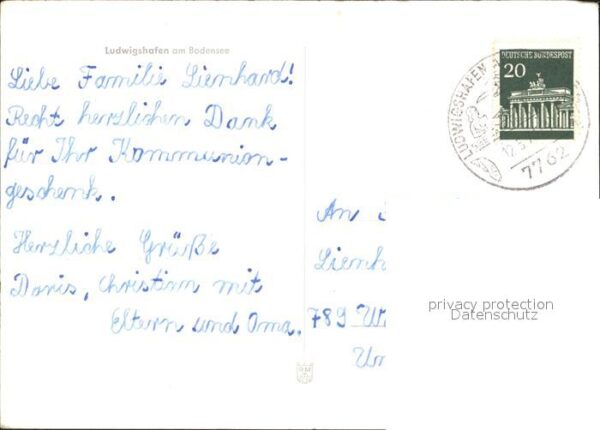 Ludwigshafen am Bodensee
Liebe Familie Lienhard!
Recht herzlichen Dank
für Ihr Kommunion-
geschenk.
Herzliche Grüße
Doris, Christian mit
Eltern und Oma.
DEUTSCHE BUNDESPOST
20
LUDWIGSHAFEN
7762
An
Lienh
789
privacy protection
Datenschutz